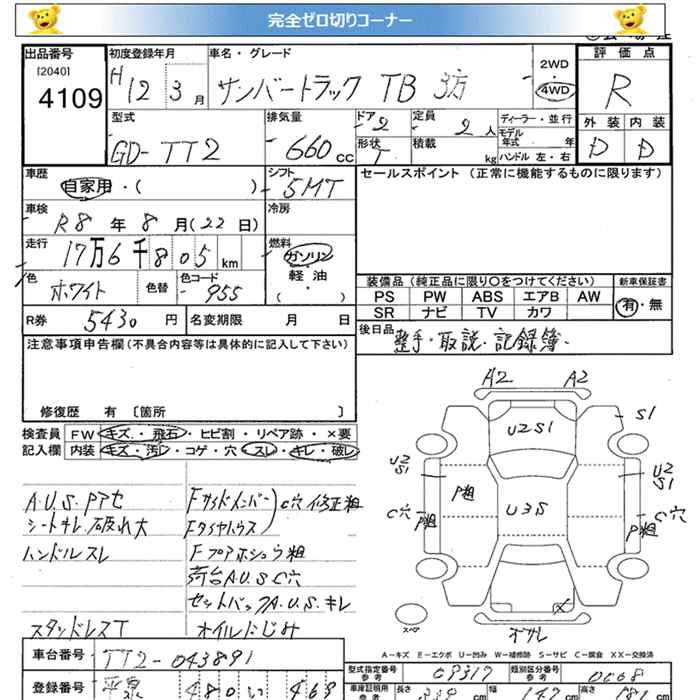 完全ゼロ切りコーナー
出品番号
[2040]
4109
初度登録年月
H12 3月
車名・グレード
サンバートラック TB 3方
2WD
4WD
評価点
R
型式
GD-TT2
排気量
660cc
ドア
2
形状
T
定員
2人
積載
kg
ディーラー・並行
モデル年式 年
ハンドル 左・右
外装
内装
D
D
車歴
自家用・( )
シフト
5MT
セールスポイント(正常に機能するものに限ります)
車検
R8年8月(22日)
冷房
走行
17万6千805km
燃料
ガソリン
軽油
( ・ )
色
ホワイト
色替
色コード
955
装備品(純正品に限り〇をつけてください)
新車保証書
PS PW ABS エアB AW
SR ナビ TV カワ
有・無
R券 5430円
名変期限 月 日
後日品
整手・取説・記録簿・
注意事項申告欄(不具合内容等は具体的に記入して下さい)
修復歴 有 〔箇所 〕
検査員
記入欄
FW キズ・飛石・ヒビ割・リペア跡・×要
内装 キズ・汚レ・コゲ・穴・スレ・キレ・破レ
A.U.S.Pアセ
シートキレ.破れ大
ハンドルスレ
スタッドレスT
Fサイドメンバー
Fタイヤハウス
C穴 修正粗
Fフロアホシュウ粗
荷台A.U.S C穴
セットバックA.U.S.キレ
オイルにじみ
A2
A2
S1
U2S1
U2
S1
U2
S1
P粗
U3S
C穴
P粗
C穴
P粗
スペア
オサレ
A-キズ E-エクボ U-凹み W-補修跡 S-サビ C-腐食 XX-交換済
車台番号
TT2-043891
登録番号
平泉 480 い 469
型式指定番号
参考
09317
類別区分番号
参考
0068
車庫証明用
参考
長さ
cm
幅
147cm
高さ
181cm